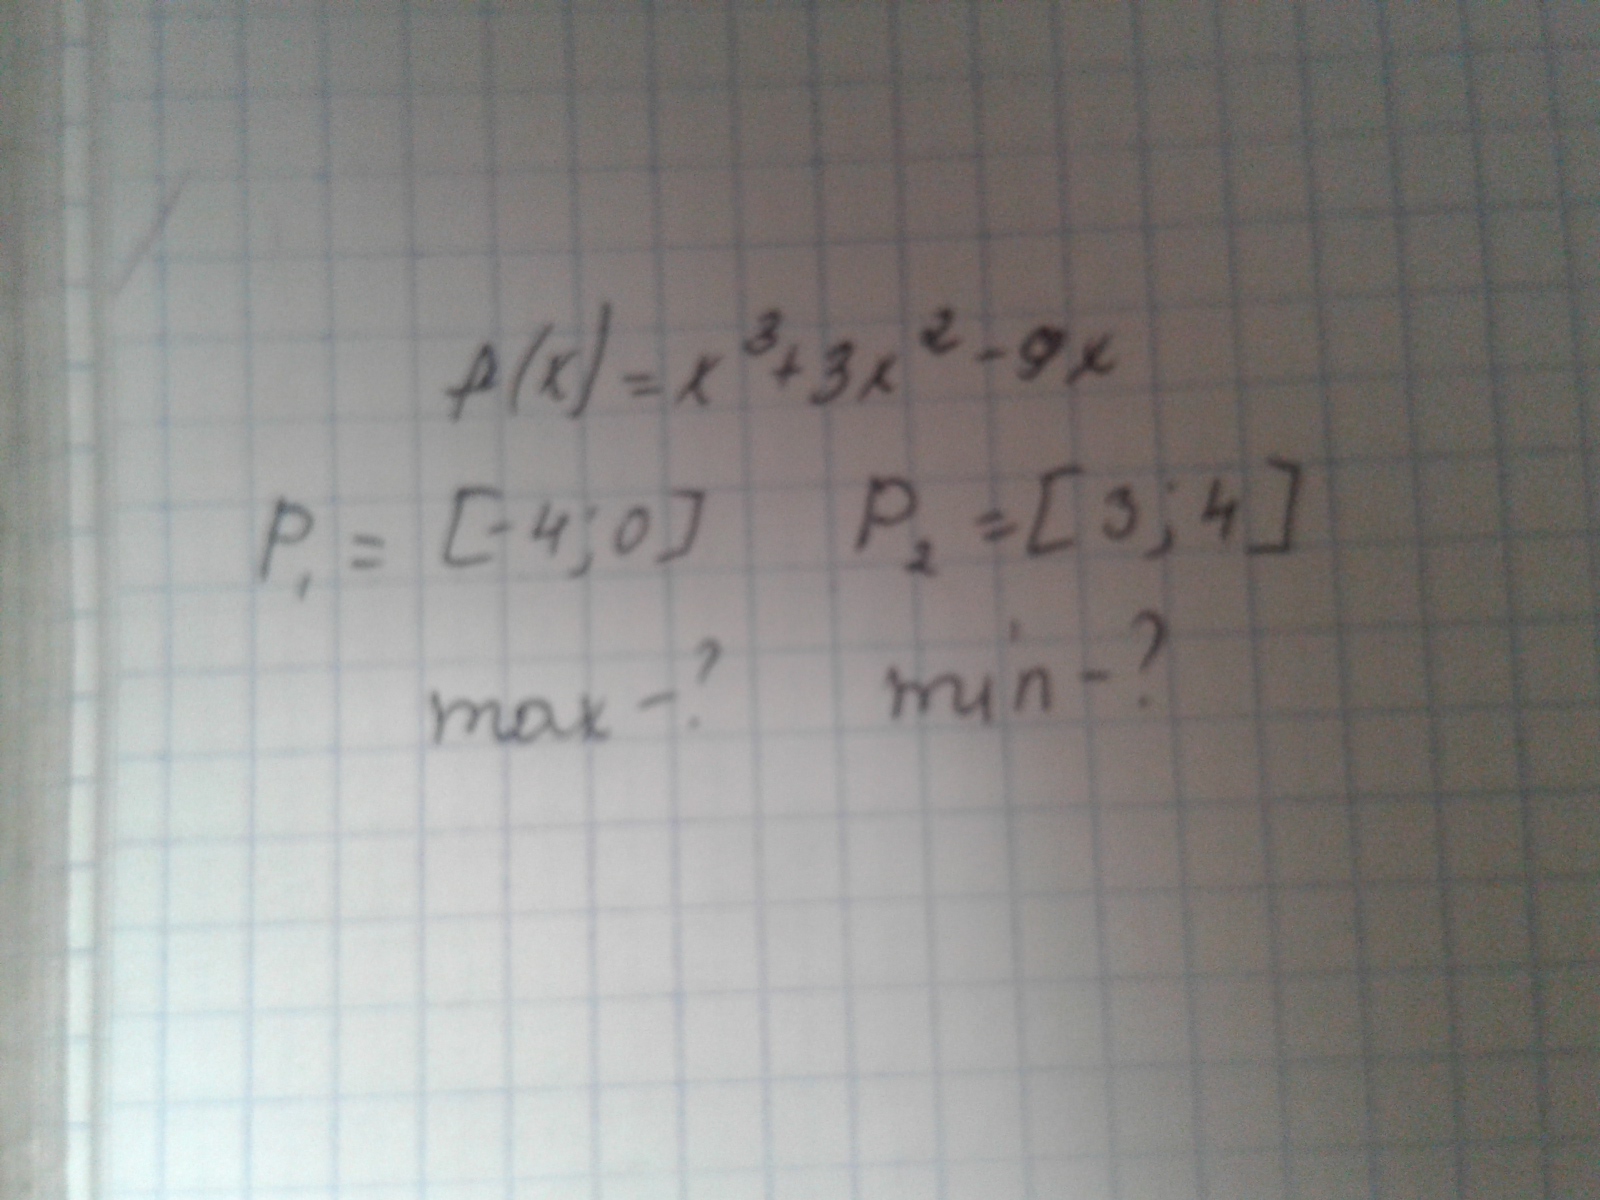 f(x)=x³+3x²-9x
P₁=[-4;0] P₂=[3;4]
max-? min-?